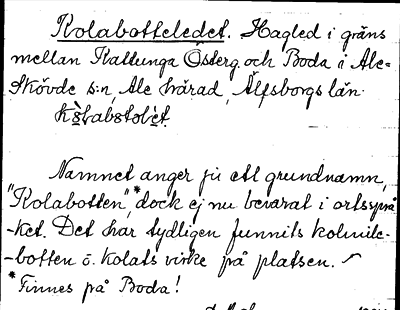 Kolabotteledet. Hagled i gräns
mellan Kattunga Österg. och Boda i Ale-
Skövde s:n, Ale härad, Älfsborgs län.
Namnet anger ju ett grundnamn,
"Kolabotten",* dock ej nu bevarat i ortssprå-
-ket. Det har tydligen funnits kolmile-
-botten o. kolats virke på platsen.
*Finnes på Boda!